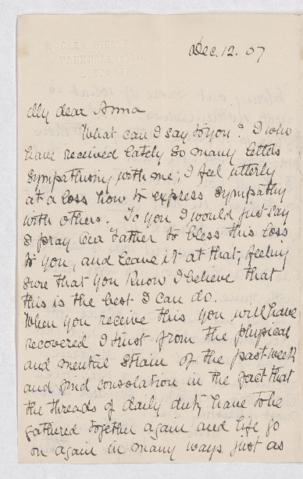 Dec. 12. 07
My dear Anna
What can I say to you? I who
have received lately so many letters
sympathising with me; I feel utterly
at a loss how to express sympathy
with others. To you I would just say
I pray Our Father to bless this loss
to you, and leave it at that, feeling
sure that you know I believe that
this is the best I can do.
When you receive this you will have
recovered I trust from the physical
and mental strain of the past week
and find consolation in the fact that
the threads of daily duty have to be
gathered together again and life go
on again in many ways just as